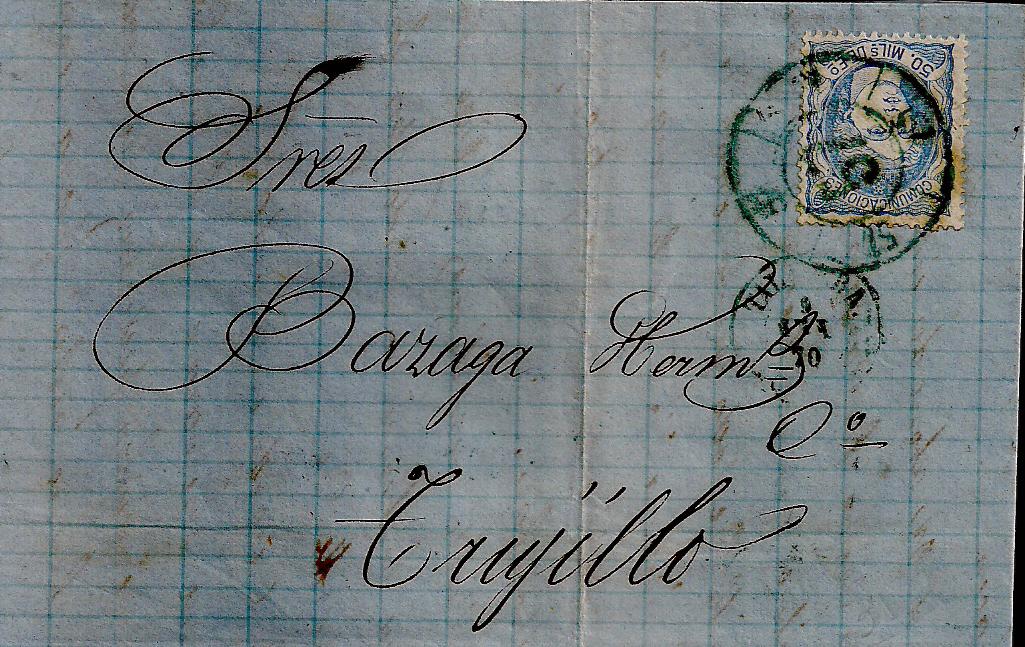 Sres
Bazaga Herm.ˢ
Cº
Trujillo
50. MILˢ DE Eº
COMUNICACIONES